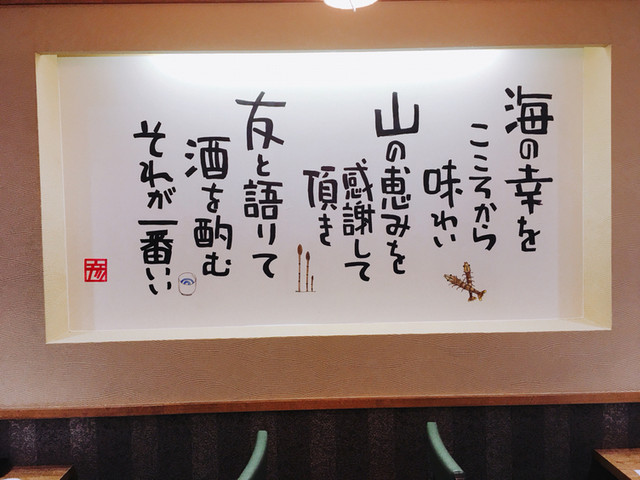 海の幸を
こころから
味わい
山の恵みを
感謝して
頂き
友と語りて
酒を酌む
それが一番いい